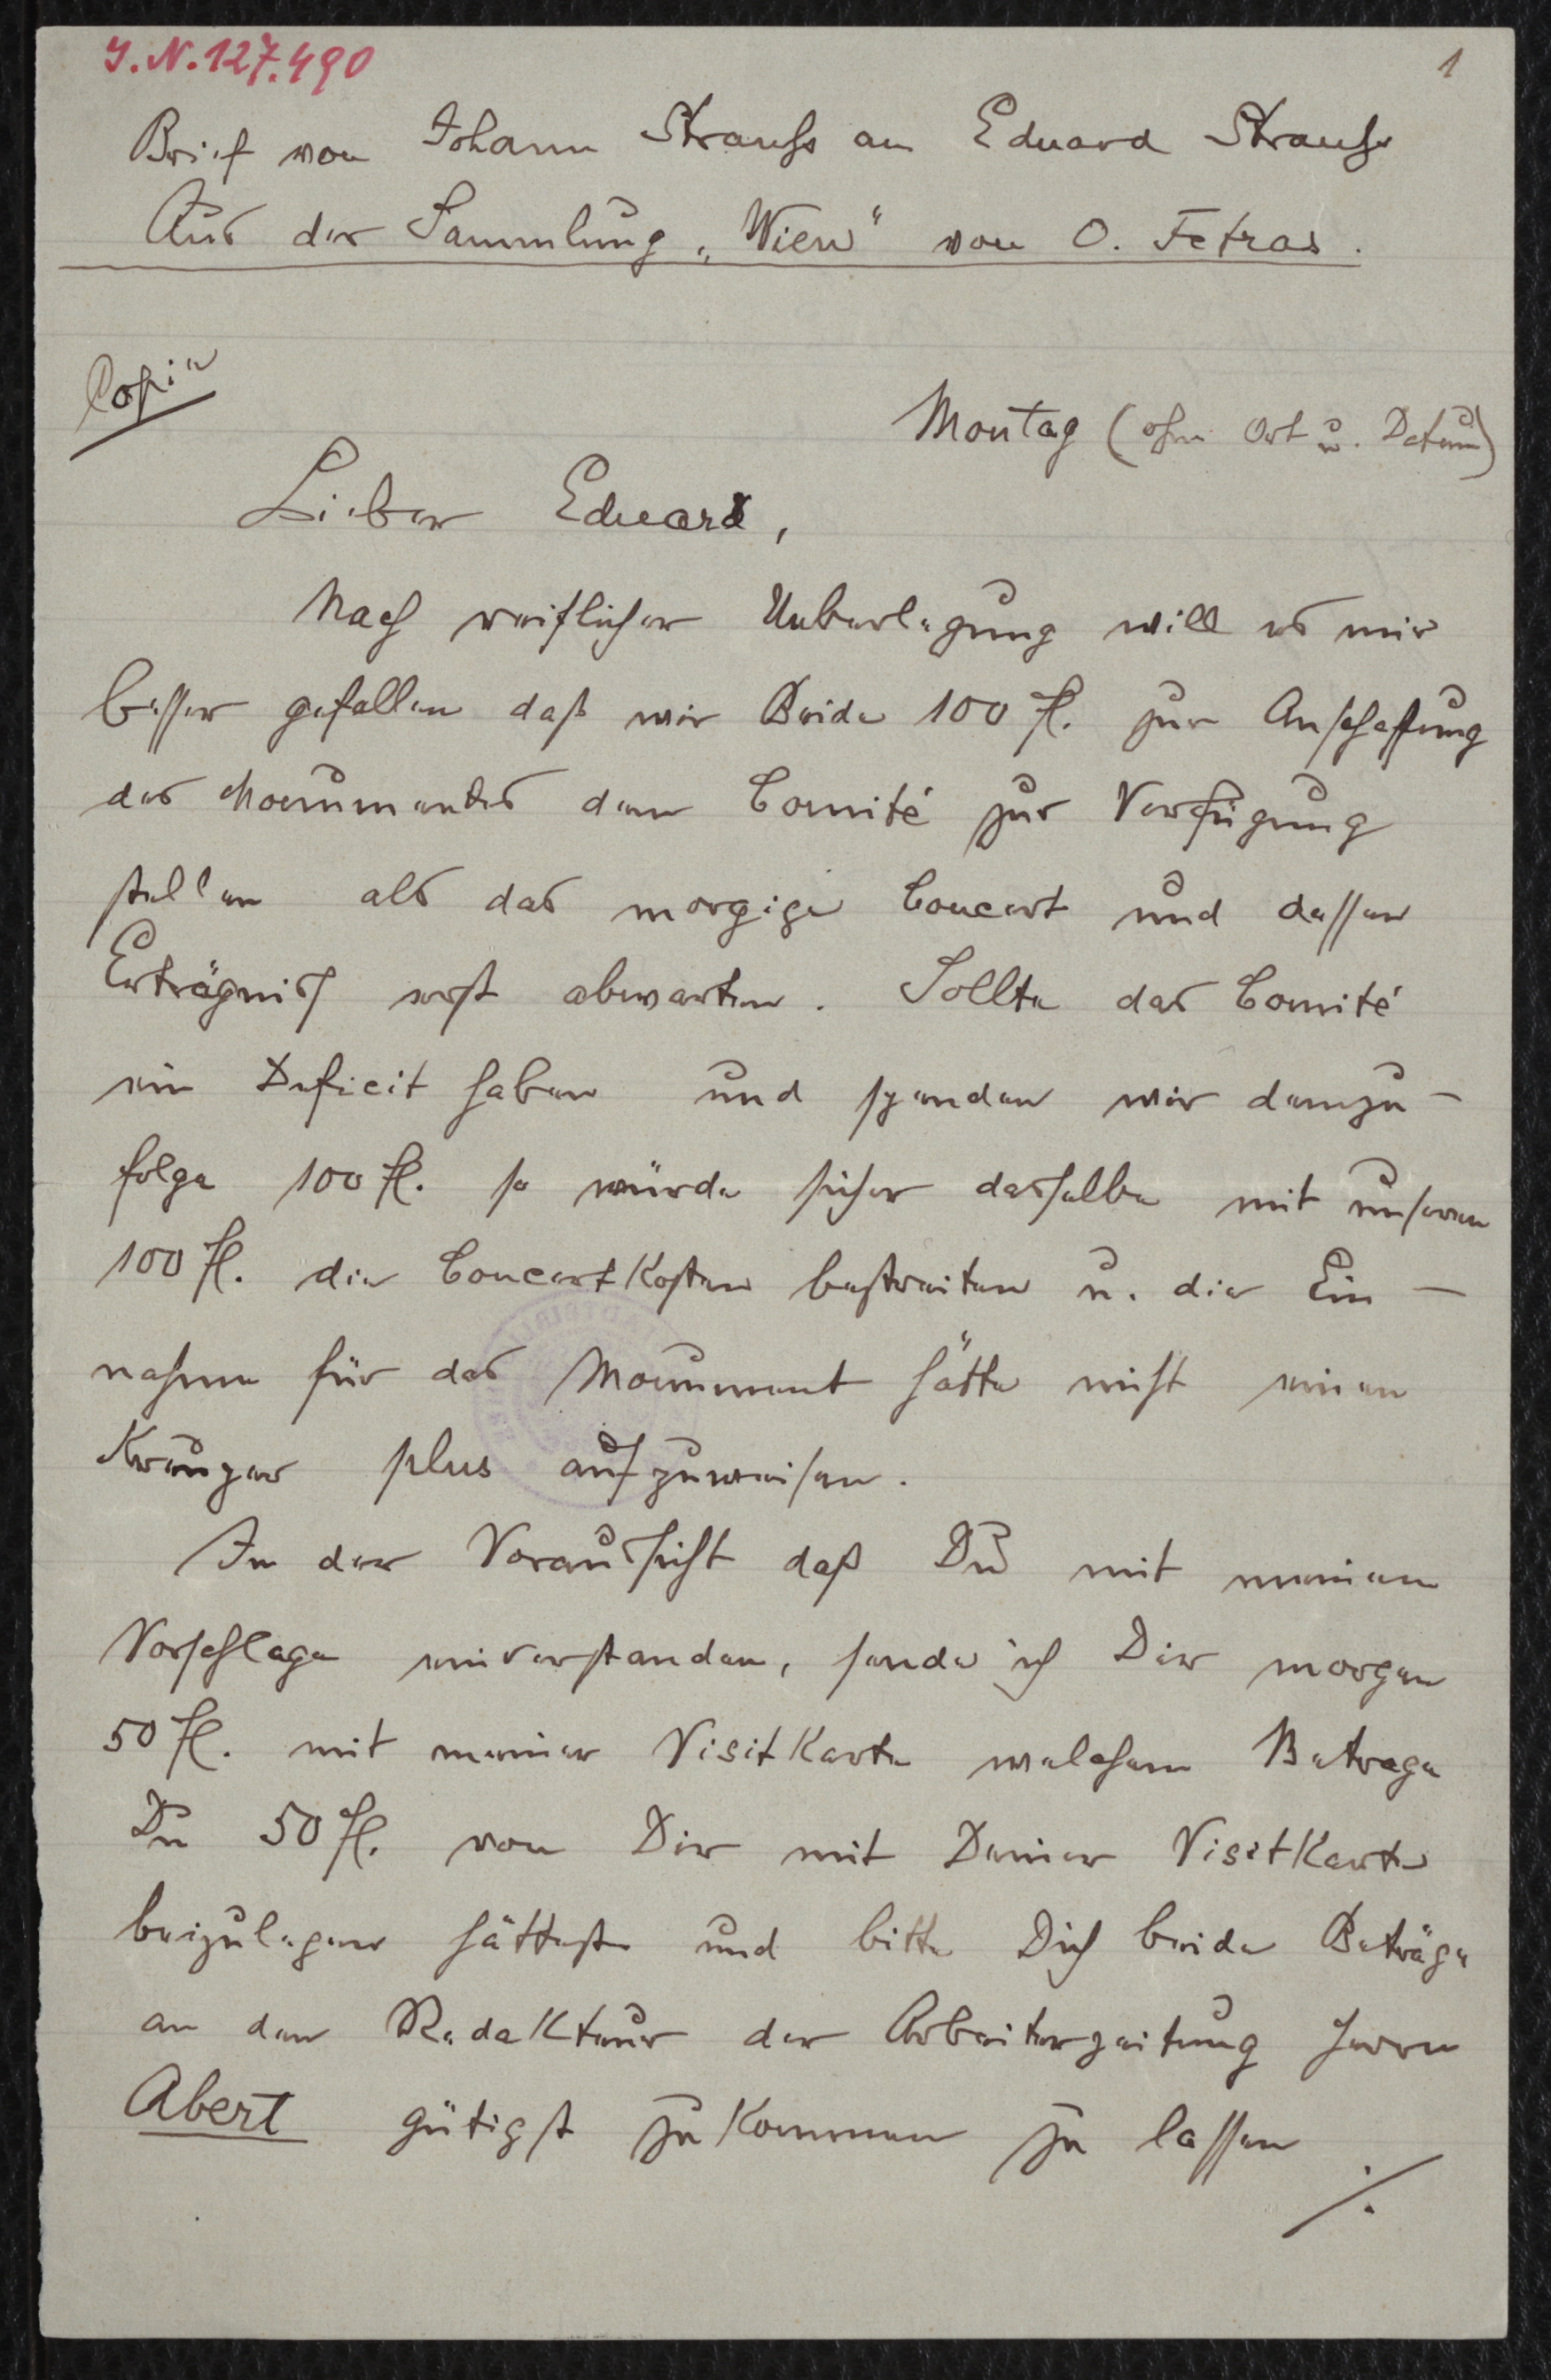 J.N.127.490
1
Brief von Johann Strauss an Eduard Strauss
Aus der Sammlung „Wien“ von O. Fetras.
Copie
Montag (ohne Ort u. Datum)
Lieber Eduard,
Nach reiflicher Ueberlegung will es mir
besser gefallen daß wir Beide 100 fl. zur Anschaffung
des Monumentes dem Comité zur Verfügung
stellen als das morgige Concert und dessen
Erträgniss erst abwarten. Sollte das Comité
ein Deficit haben und spenden wir demzu-
folge 100 fl. so würde sicher dasselbe mit unseren
100 fl. die Concertkosten bestreiten u. die Ein-
nahme für das Monument hätte nicht einen
Kreuzer plus aufzuweisen.
In der Voraussicht daß Du mit meinem
Vorschlage einverstanden, sende ich Dir morgen
50 fl. mit meiner Visitkarte welchem Betrage
Du 50 fl. von Dir mit Deiner Visitkarte
beizulegen hättest und bitte Dich beide Beträge
an den Redakteur der Arbeiterzeitung Herrn
Abert gütigst zukommen zu lassen
./.